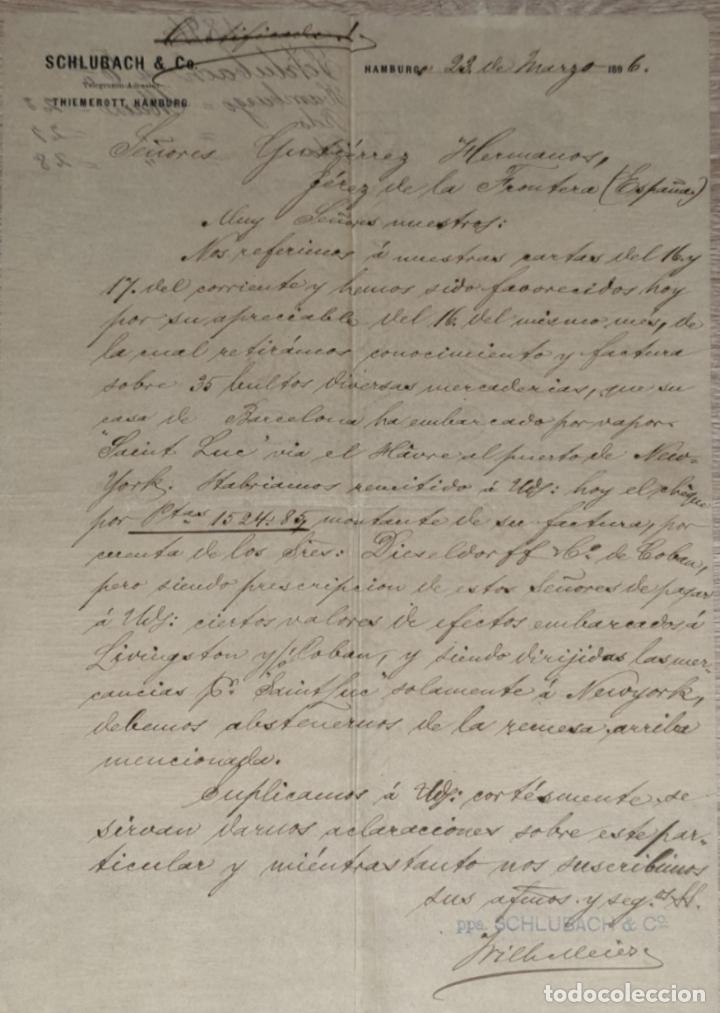 Certificado
SCHLUBACH & Co.
Telegramm-Adresse:
THIEMEROTT, HAMBURG
HAMBURG, 23. de Marzo 1896.
Señores Gutiérrez Hermanos,
Jérez de la Frontera (España)
Muy Señores nuestros:
Nos referimos á nuestras cartas del 16. y
17. del corriente y hemos sido favorecidos hoy
por su apreciable del 16. del mismo mes, de
la cual retirámos conocimiento y factura
sobre 35 bultos diversas mercaderias, que su
casa de Barcelona ha embarcado por vapor
"Saint Luc" via el Hâvre al puerto de New-
York. Habriamos remitido á Uds: hoy el chèque
por Ptas 1524:85, montante de su factura, por
cuenta de los Sres: Dieseldorff & Co. de Coban,
pero siendo prescripcion de estos Señores de pagar
á Uds: ciertos valores de efectos embarcados á
Livingston y/o Coban, y siendo dirijidas las mer-
cancias pr. "Saint Luc" solamente á Newyork,
debemos abstenernos de la remesa arriba
mencionada.
Suplicamos á Uds: cortésmente se
sirvan darnos aclaraciones sobre este par-
ticular y miéntrastanto nos suscribimos
sus atmos. y segos. Ss.
ppa. SCHLUBACH & Co.
Wilh Meier
todocoleccion